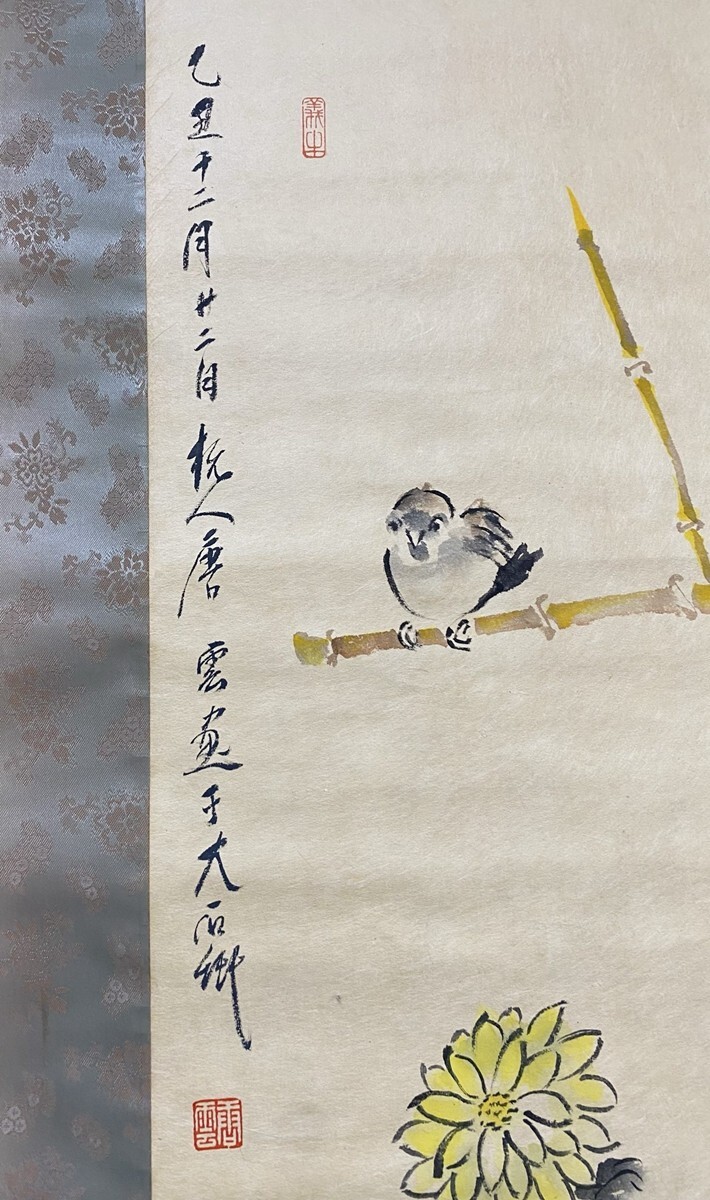 乙丑十二月廿二日杭人唐雲畫于大石鄉
唐雲